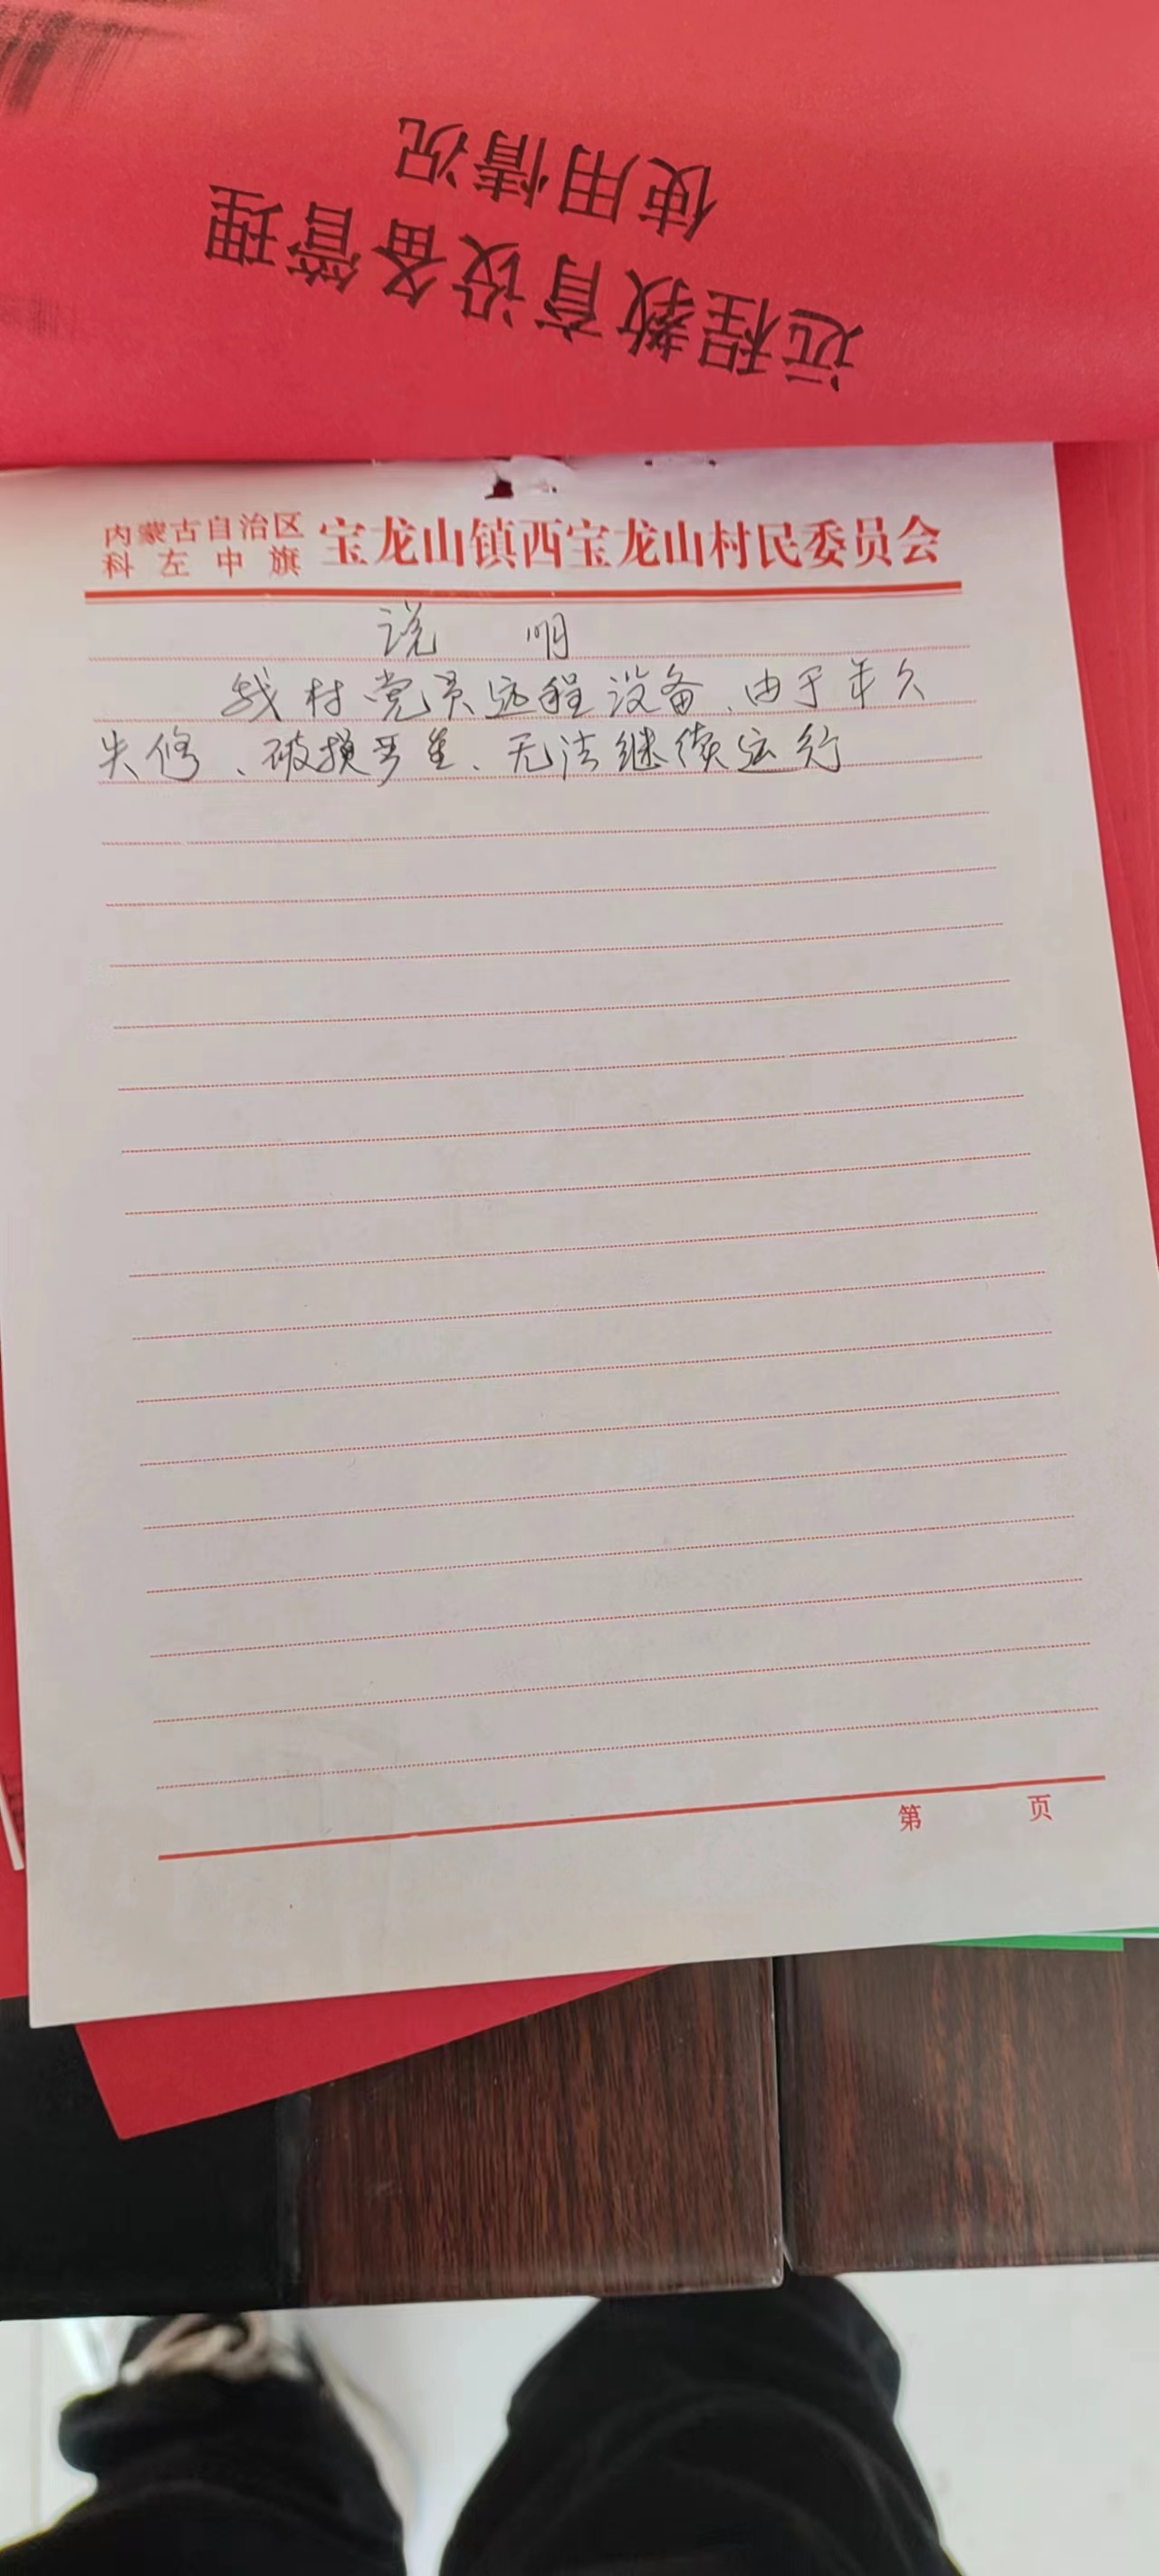 远程教育设备管理
使用情况
内蒙古自治区
科左中旗
宝龙山镇西宝龙山村民委员会
说 明
我村党员远程设备、由于年久
失修、破损严重、无法继续运行
第 页